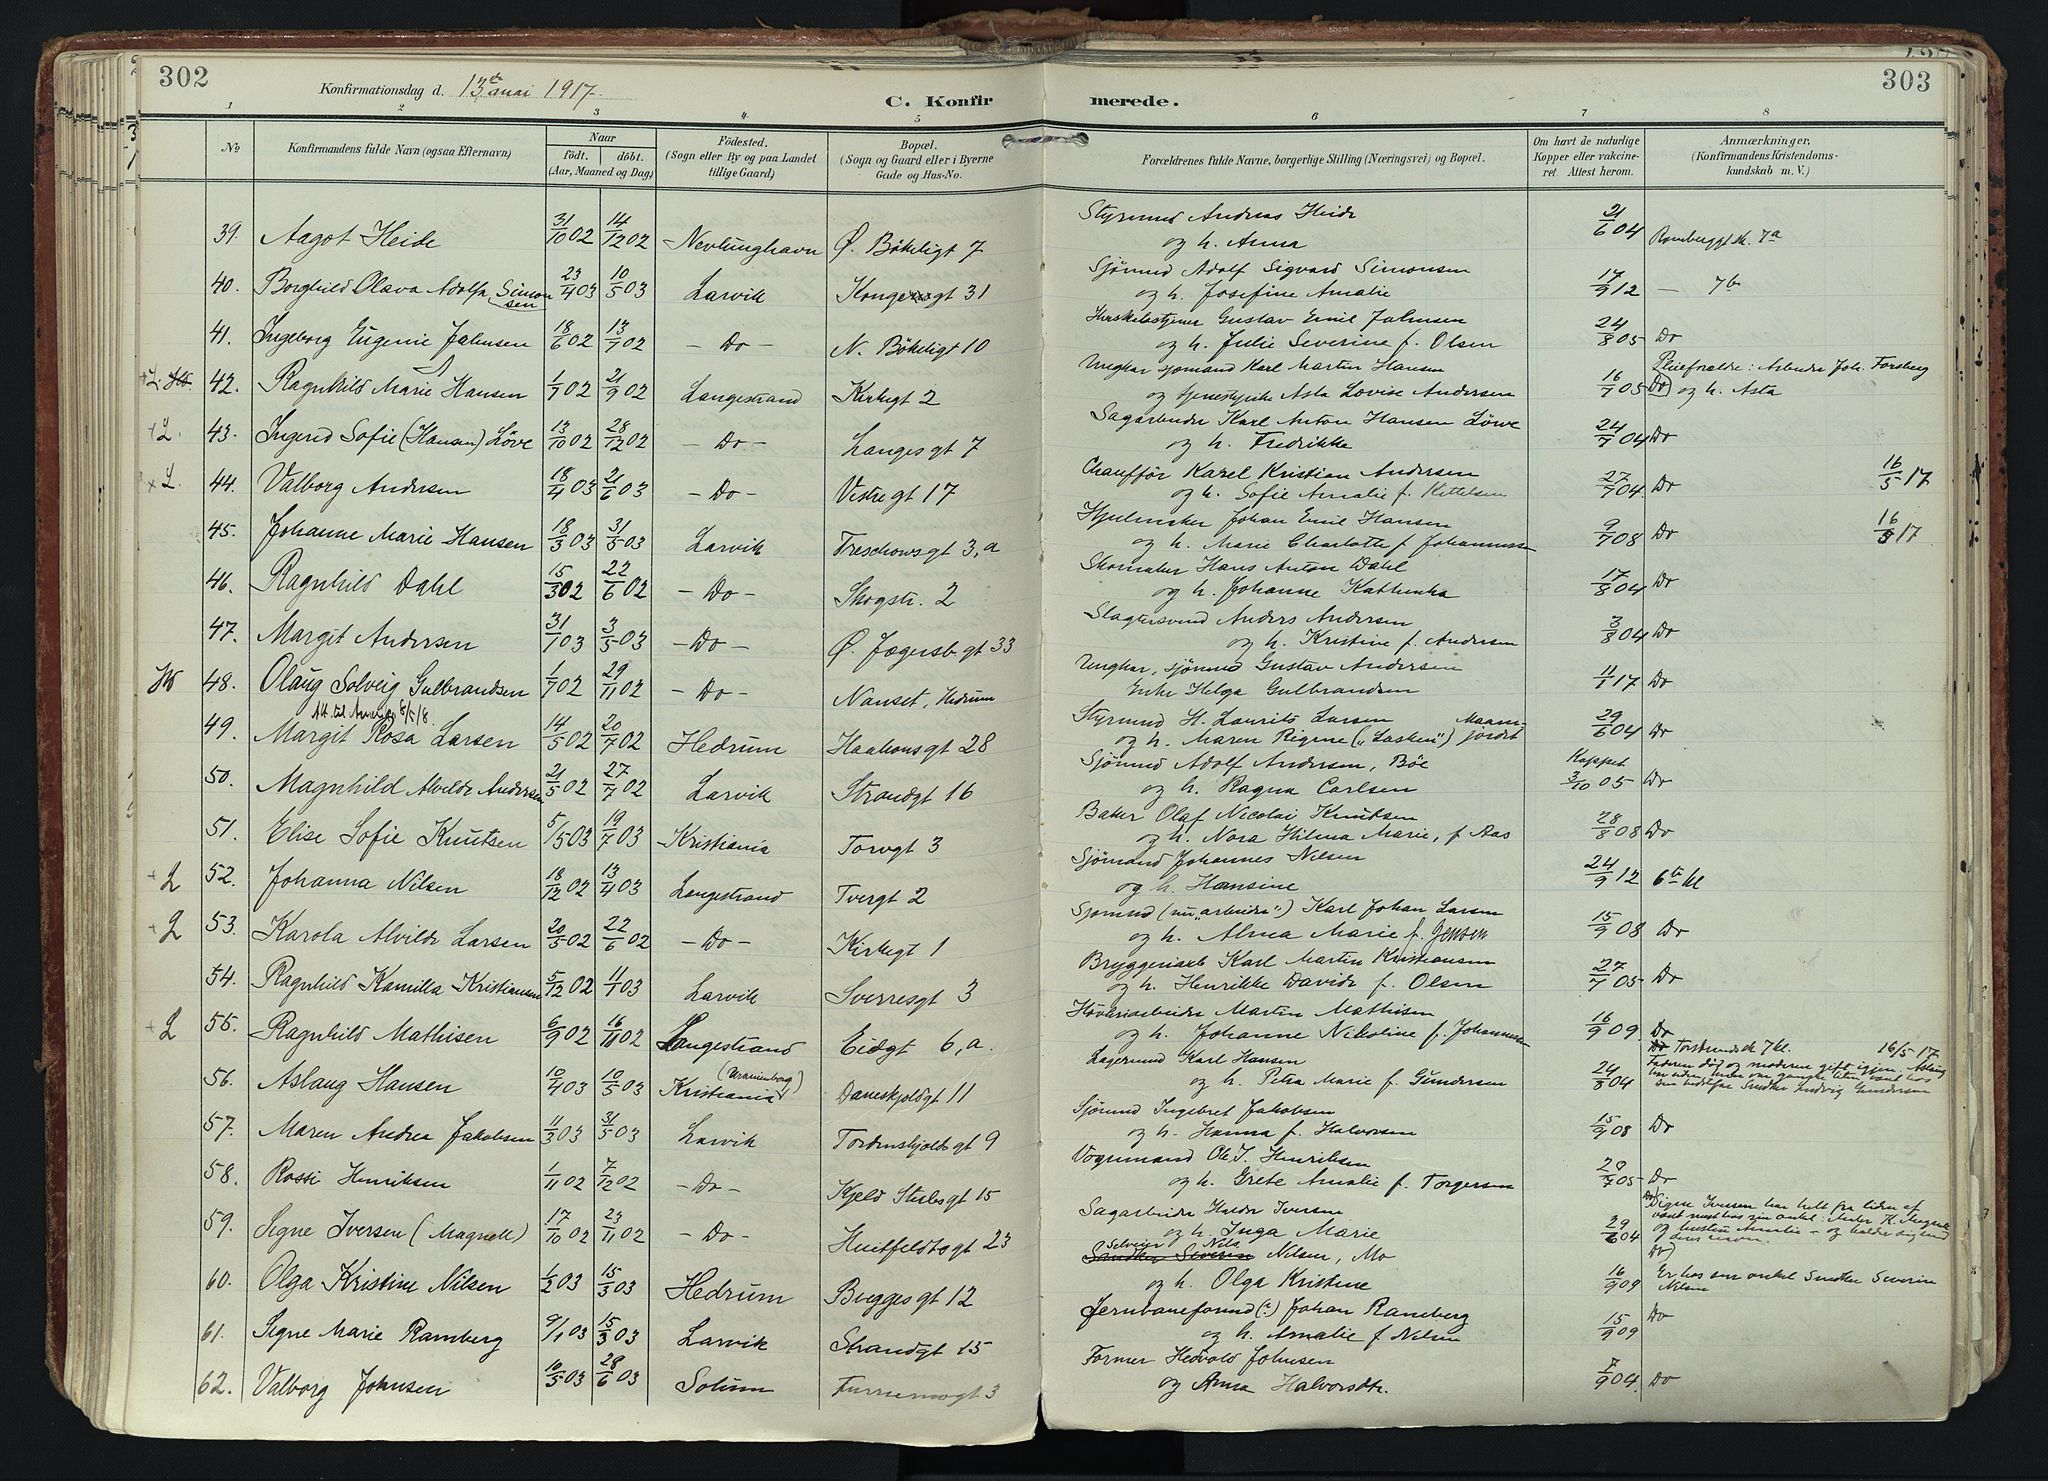 302
Konfirmationsdag d. 13de mai 1917.
C. Konfirmerede.
303
1 2 3 4 5 6 7 8
No
Konfirmandens fulde Navn (ogsaa Efternavn)
Naar
født. døbt.
(Aar, Maaned og Dag)
Fødested.
(Sogn eller By og paa Landet
tillige Gaard.)
Bopæl.
(Sogn og Gaard eller i Byerne
Gade og Hus-No.
Forældrenes fulde Navne, borgerlige Stilling (Næringsvei) og Bopæl.
Om havt de naturlige
Kopper eller vakcine-
ret Attest herom.
Anmærkninger.
(Konfirmandens Kristendoms-
kundskab m. V.)
39. Aagot Heide 31/10 02 14/12 02 Nevlunghavn Ø. Bökeligt 7 Styrmand Andreas Heide 21/6 04
og h. Anna Rambergsk. 7a
40. Borghild Olava Adolfa Simon 23/4 03 10/5 03 Larvik Kongegt 31 Sjömand Adolf Sigvard Simonsen 17/9 12
sen og h. Josefine Amalie — 7b
41. Ingeborg Eugenie Johnsen 18/6 02 13/7 02 — Do — N. Bökeligt 10 Gustav Emil Johnsen 24/8 05 Do
og h. Julie Severine f. Olsen
+ L 42. Ragnhild Marie Hansen 1/7 02 21/9 02 Langestrand Kirkegt 2 Ungkar sjömand Karl Martin Hansen 16/7 05 Pleieforældre: Arbeider Joh. Forsberg
og tjenestepike Asta Lovise Andersen Do og h. Asta
+ L. 43. Ingerid Sofie (Hansen) Löve 13/10 02 28/12 02 — Do — Langes gt 7 Sagarbeider Karl Anton Hansen Löwe 24/7 04 Do
og h. Fredrikke
+ L. 44. Valborg Andersen 18/4 03 21/6 03 — Do — Vestre gt 17 Chaufför Karel Kristian Andersen 27/7 04 Do 16/5 17
og h. Sofie Amalie f. Kittelsen
45. Johanne Marie Hansen 18/3 03 31/5 03 Larvik Treschows gt 3, a Hjulmaker Johan Emil Hansen 9/7 08 Do 16/5 17
og h. Marie Charlotte f. Johannessen
46. Ragnhild Dahl 15/3 02 22/6 02 — Do — Skogstr. 2 Skomaker Hans Anton Dahl 17/8 04 Do
og h. Johanne Kathinka
47. Margit Andersen 31/1 03 3/5 03 — Do — Ø. Jægersb. gt 33 Slagtersvend Anders Andersen 3/8 04 Do
og h. Kristine f. Andersen
48. Olaug Solveig Gulbrandsen 1/7 02 29/11 02 — Do — Nanset, Hedrum Ungkar, sjömand Gustav Andersen 4/1 17 Do
Att. til Amerika 8/5 18. Enke Helga Gulbrandsen
49. Margit Rosa Larsen 14/5 02 20/7 02 Hedrum Haakons gt 28 Styrmand H. Laurits Larsen 29/6 04 Do
og h. Maren Regine ("Lasken")
50. Magnhild Alvilde Andersen 21/5 02 27/7 02 Larvik Strandgt 16 Sjömand Adolf Andersen, Böe Koppet
og h. Ragna Carlsen 3/10 05 Do
51. Elise Sofie Knutsen 5/5 03 19/7 03 Kristiania Torvgt 3 Baker Olaf Nicolai Knutsen 28/8 08 Do
og h. Nora Hilma Marie, f. Aas
+ L 52. Johanna Nilsen 18/12 02 13/4 03 Langestrand Tvergt 2 Sjömand Johannes Nilsen 24/9 12 6te kl
og h. Hansine
+ L 53. Karola Alvilde Larsen 20/5 02 22/6 02 — Do — Kirkegt 1 Sjömand (nu "arbeider") Karl Johan Larsen 15/9 08 Do
og h. Alma Marie f. Jensen
54. Ragnhild Kamilla Kristiansen 5/12 02 11/1 03 Larvik Sverresgt 3 Bryggeriarb Karl Martin Kristiansen 27/7 05 Do
og h. Henrikke Davida f. Olsen
+ L 55. Ragnhild Mathisen 6/9 02 16/11 02 Langestrand Eidgt 6, a. Høvleriarbeider Martin Mathisen 16/9 09 Do
og h. Johanne Nikoline f. Johannessen
56. Aslaug Hansen 10/4 03 10/5 03 Kristiania (Uranienborg) Daneskjoldsgt 11 Lagermand Karl Hansen 24/8 04 Do Torstrands sk 7 kl. 16/5 17
og h. Petra Marie f. Gundersen Faderen død og moderen gift igjen. Aslaug
57. Maren Andrea Jakobsen 11/3 03 31/5 03 Larvik Tordenskjolds gt 9 Sjömand Ingebret Jakobsen 15/9 08 Do
og h. Hanna f. Halvorsen
58. Rossi Henriksen 1/11 02 7/12 02 — Do — Kjeld Stubs gt 15 Vognmand Ole J. Henriksen 20/7 05 Do
og h. Grete Amalie f. Torgersen
59. Signe Iversen (Magnell) 17/10 02 23/11 02 — Do — Huitfeldts gt 23 Sagarbeider Iversen 29/6 04 Do Signe Iversen har helt fra liden af
og h. Inga Marie været
60. Olga Kristine Nilsen 1/2 03 15/3 03 Hedrum Bugges gt 12 Smedker Severin Nils Nilsen, Mo Do
og h. Olga Kristine 16/9 09 Er hos sin onkel Smedker Severin
Nilsen
61. Signe Marie Ramberg 9/1 03 15/3 03 Larvik Strandgt 15 Jernbaneformand (?) Johan Ramberg 15/9 09 Do
og h. Amalie f. Nilsen
62. Valborg Johnsen 10/5 03 28/6 03 Solum Furumogt 3 Former Hedvald Johnsen 7/9 04. Do
og Anna Halvorsdtr.